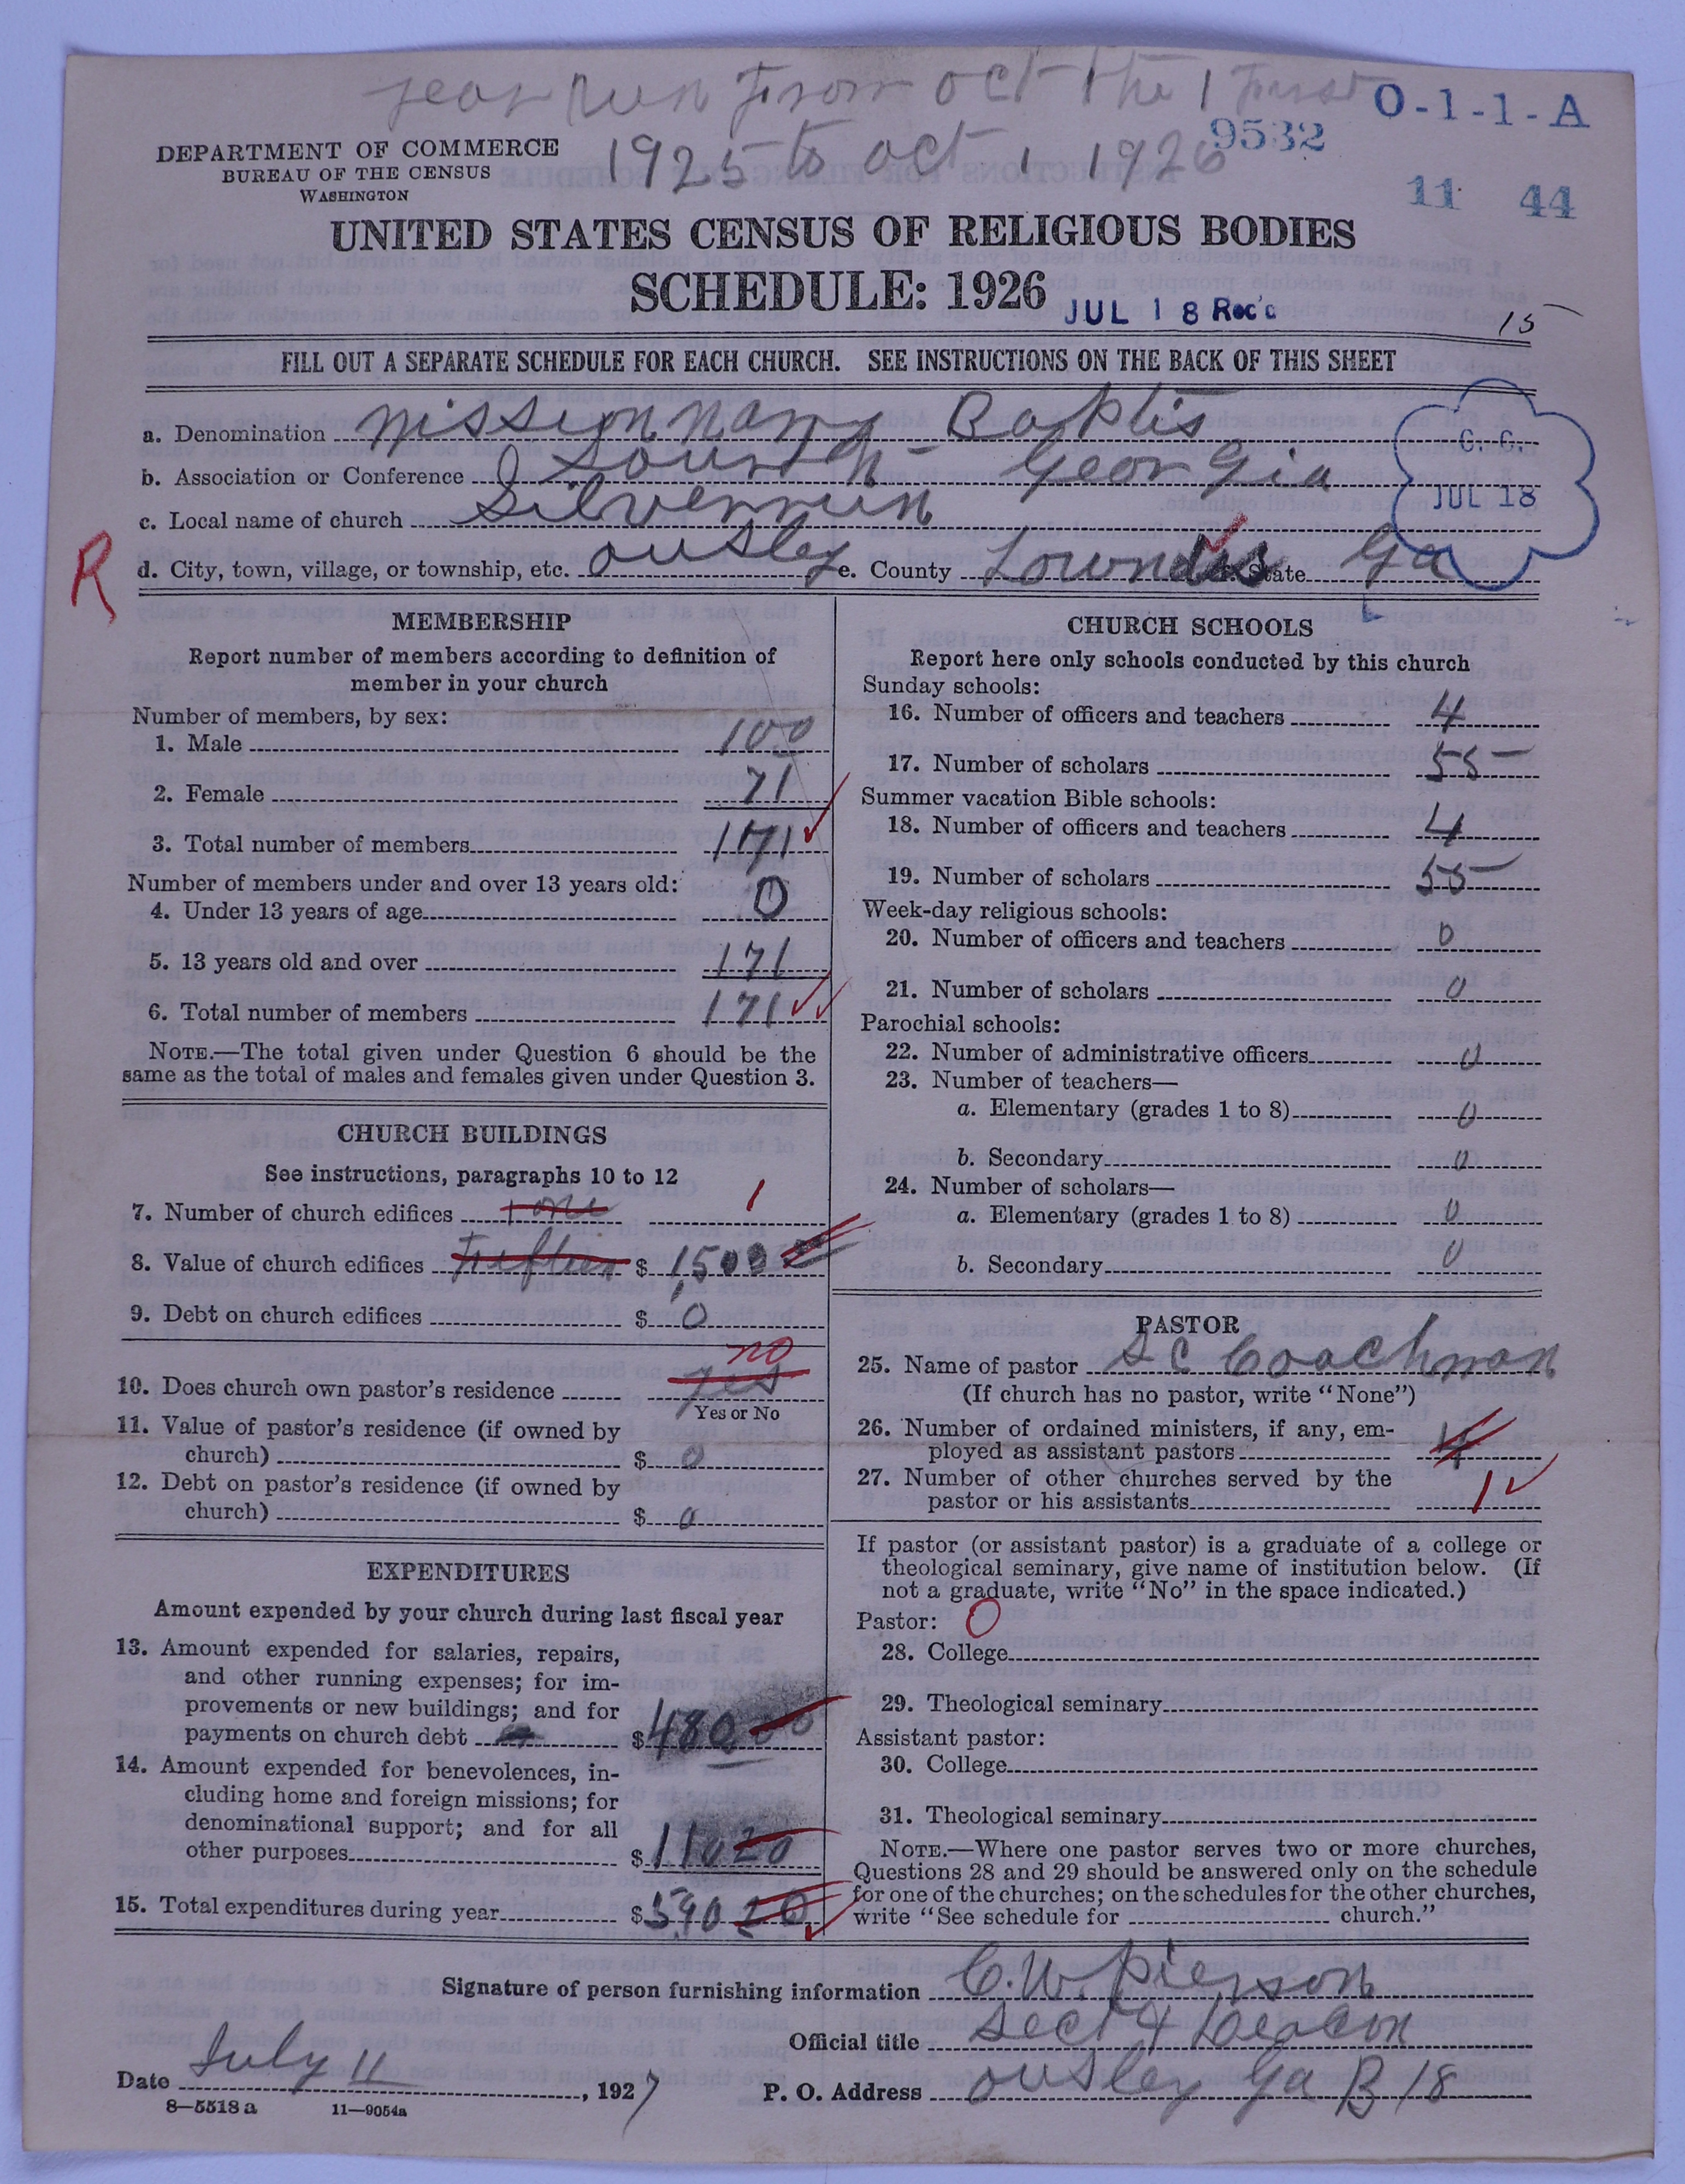 year Run From oct the 1 First
O-1-1-A
1925 to oct 1 1926
9532
DEPARTMENT OF COMMERCE
BUREAU OF THE CENSUS
WASHINGTON
11 44
UNITED STATES CENSUS OF RELIGIOUS BODIES
SCHEDULE: 1926
JUL 18 Rec'd
15
FILL OUT A SEPARATE SCHEDULE FOR EACH CHURCH. SEE INSTRUCTIONS ON THE BACK OF THIS SHEET
a. Denomination Missionnary Baptis
b. Association or Conference South Georgia
C. C.
JUL 18
c. Local name of church Silverrun
R
d. City, town, village, or township, etc. ousley e. County Lowndes State Ga
MEMBERSHIP
Report number of members according to definition of
member in your church
Number of members, by sex:
1. Male 100
2. Female 71
3. Total number of members 171
Number of members under and over 13 years old:
4. Under 13 years of age 0
5. 13 years old and over 171
6. Total number of members 171
NOTE.—The total given under Question 6 should be the
same as the total of males and females given under Question 3.
CHURCH BUILDINGS
See instructions, paragraphs 10 to 12
7. Number of church edifices one 1
8. Value of church edifices Fifteen $ 1,500
9. Debt on church edifices $ 0
no
10. Does church own pastor's residence yes
Yes or No
11. Value of pastor's residence (if owned by
church) $ 0
12. Debt on pastor's residence (if owned by
church) $ 0
EXPENDITURES
Amount expended by your church during last fiscal year
13. Amount expended for salaries, repairs,
and other running expenses; for im-
provements or new buildings; and for
payments on church debt $ 480 00
14. Amount expended for benevolences, in-
cluding home and foreign missions; for
denominational support; and for all
other purposes $ 110 20
15. Total expenditures during year $ 590 20
CHURCH SCHOOLS
Report here only schools conducted by this church
Sunday schools:
16. Number of officers and teachers 4
17. Number of scholars 55
Summer vacation Bible schools:
18. Number of officers and teachers 4
19. Number of scholars 55
Week-day religious schools:
20. Number of officers and teachers 0
21. Number of scholars 0
Parochial schools:
22. Number of administrative officers 0
23. Number of teachers—
a. Elementary (grades 1 to 8) 0
b. Secondary 0
24. Number of scholars—
a. Elementary (grades 1 to 8) 0
b. Secondary 0
PASTOR
25. Name of pastor S C Coachman
(If church has no pastor, write "None")
26. Number of ordained ministers, if any, em-
ployed as assistant pastors 4
27. Number of other churches served by the
pastor or his assistants 1
If pastor (or assistant pastor) is a graduate of a college or
theological seminary, give name of institution below. (If
not a graduate, write "No" in the space indicated.)
Pastor: 0
28. College
29. Theological seminary
Assistant pastor:
30. College
31. Theological seminary
NOTE.—Where one pastor serves two or more churches,
Questions 28 and 29 should be answered only on the schedule
for one of the churches; on the schedules for the other churches,
write "See schedule for church."
Signature of person furnishing information C. W. Pierson
Official title Sect & Deacon
Date July 11, 1927
P. O. Address ousley Ga B 18
8—5518 a 11—9054a